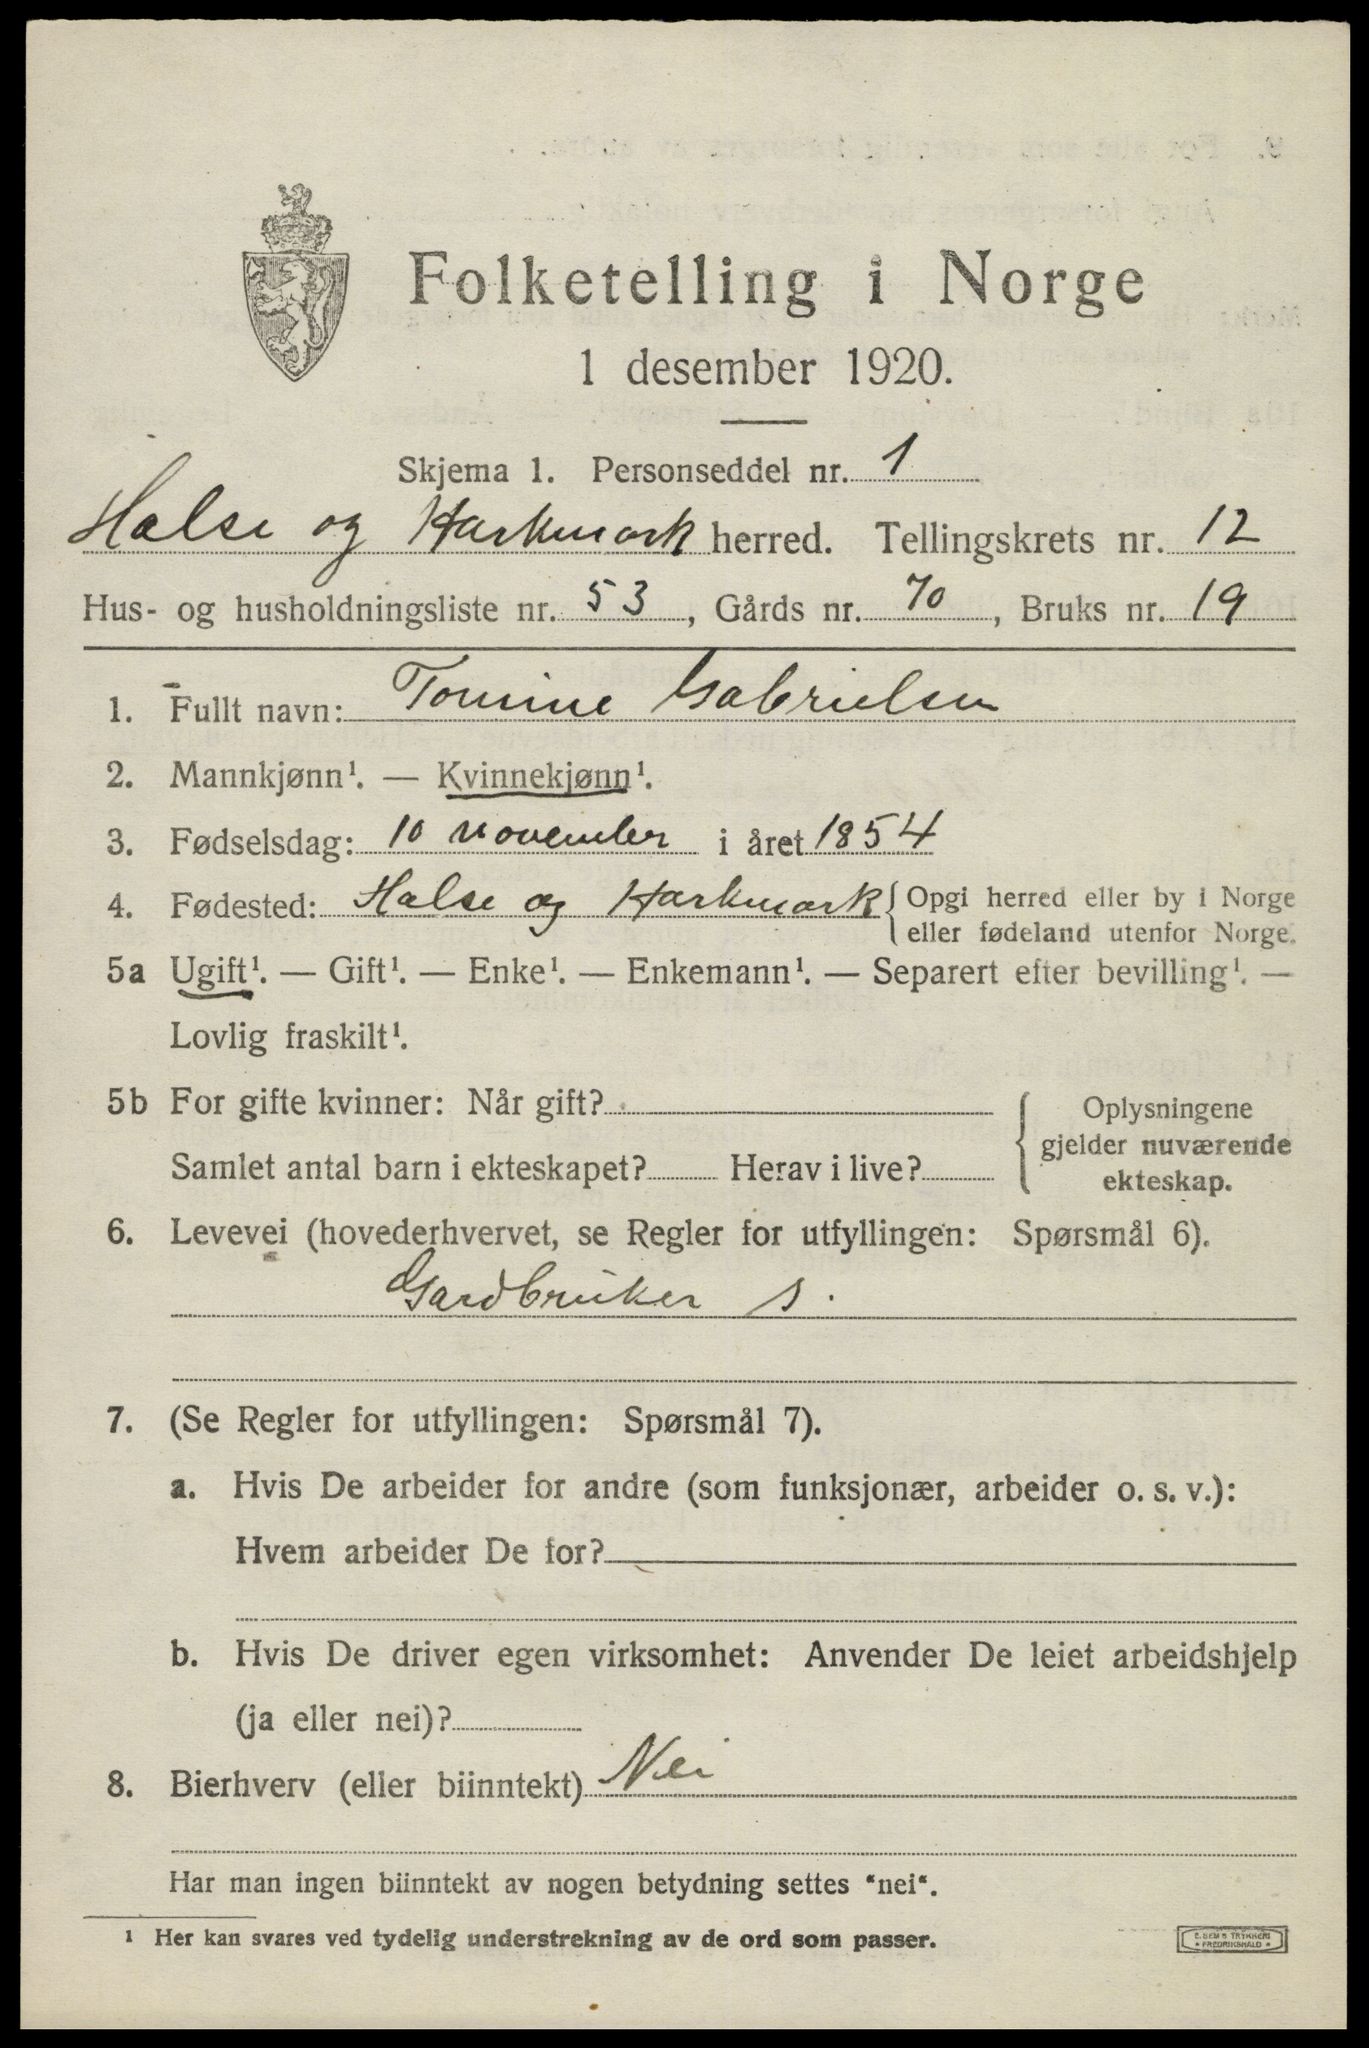 Folketelling i Norge
1 desember 1920.
Skjema 1. Personseddel nr. 1
Halse og Harkmark herred. Tellingskrets nr. 12
Hus- og husholdningsliste nr. 53, Gårds nr. 70, Bruks nr. 19
1. Fullt navn: Tomine Gabrielsen
2. Mannkjønn¹. — Kvinnekjønn¹.
3. Fødselsdag: 10 november i året 1854
4. Fødested: Halse og Harkmark { Opgi herred eller by i Norge
eller fødeland utenfor Norge.
5a Ugift¹. — Gift¹. — Enke¹. — Enkemann¹. — Separert efter bevilling¹. —
Lovlig fraskilt¹.
5b For gifte kvinner: Når gift?
Samlet antal barn i ekteskapet? Herav i live?
{ Oplysningene
gjelder nuværende
ekteskap.
6. Levevei (hovederhvervet, se Regler for utfyllingen: Spørsmål 6).
Gardbruker s.
7. (Se Regler for utfyllingen: Spørsmål 7).
a. Hvis De arbeider for andre (som funksjonær, arbeider o. s. v.):
Hvem arbeider De for?
b. Hvis De driver egen virksomhet: Anvender De leiet arbeidshjelp
(ja eller nei)?
8. Bierhverv (eller biinntekt) Nei
Har man ingen biinntekt av nogen betydning settes "nei".
¹ Her kan svares ved tydelig understrekning av de ord som passer.
E. SEM'S TRYKKERI
* FREDRIKSHALD *